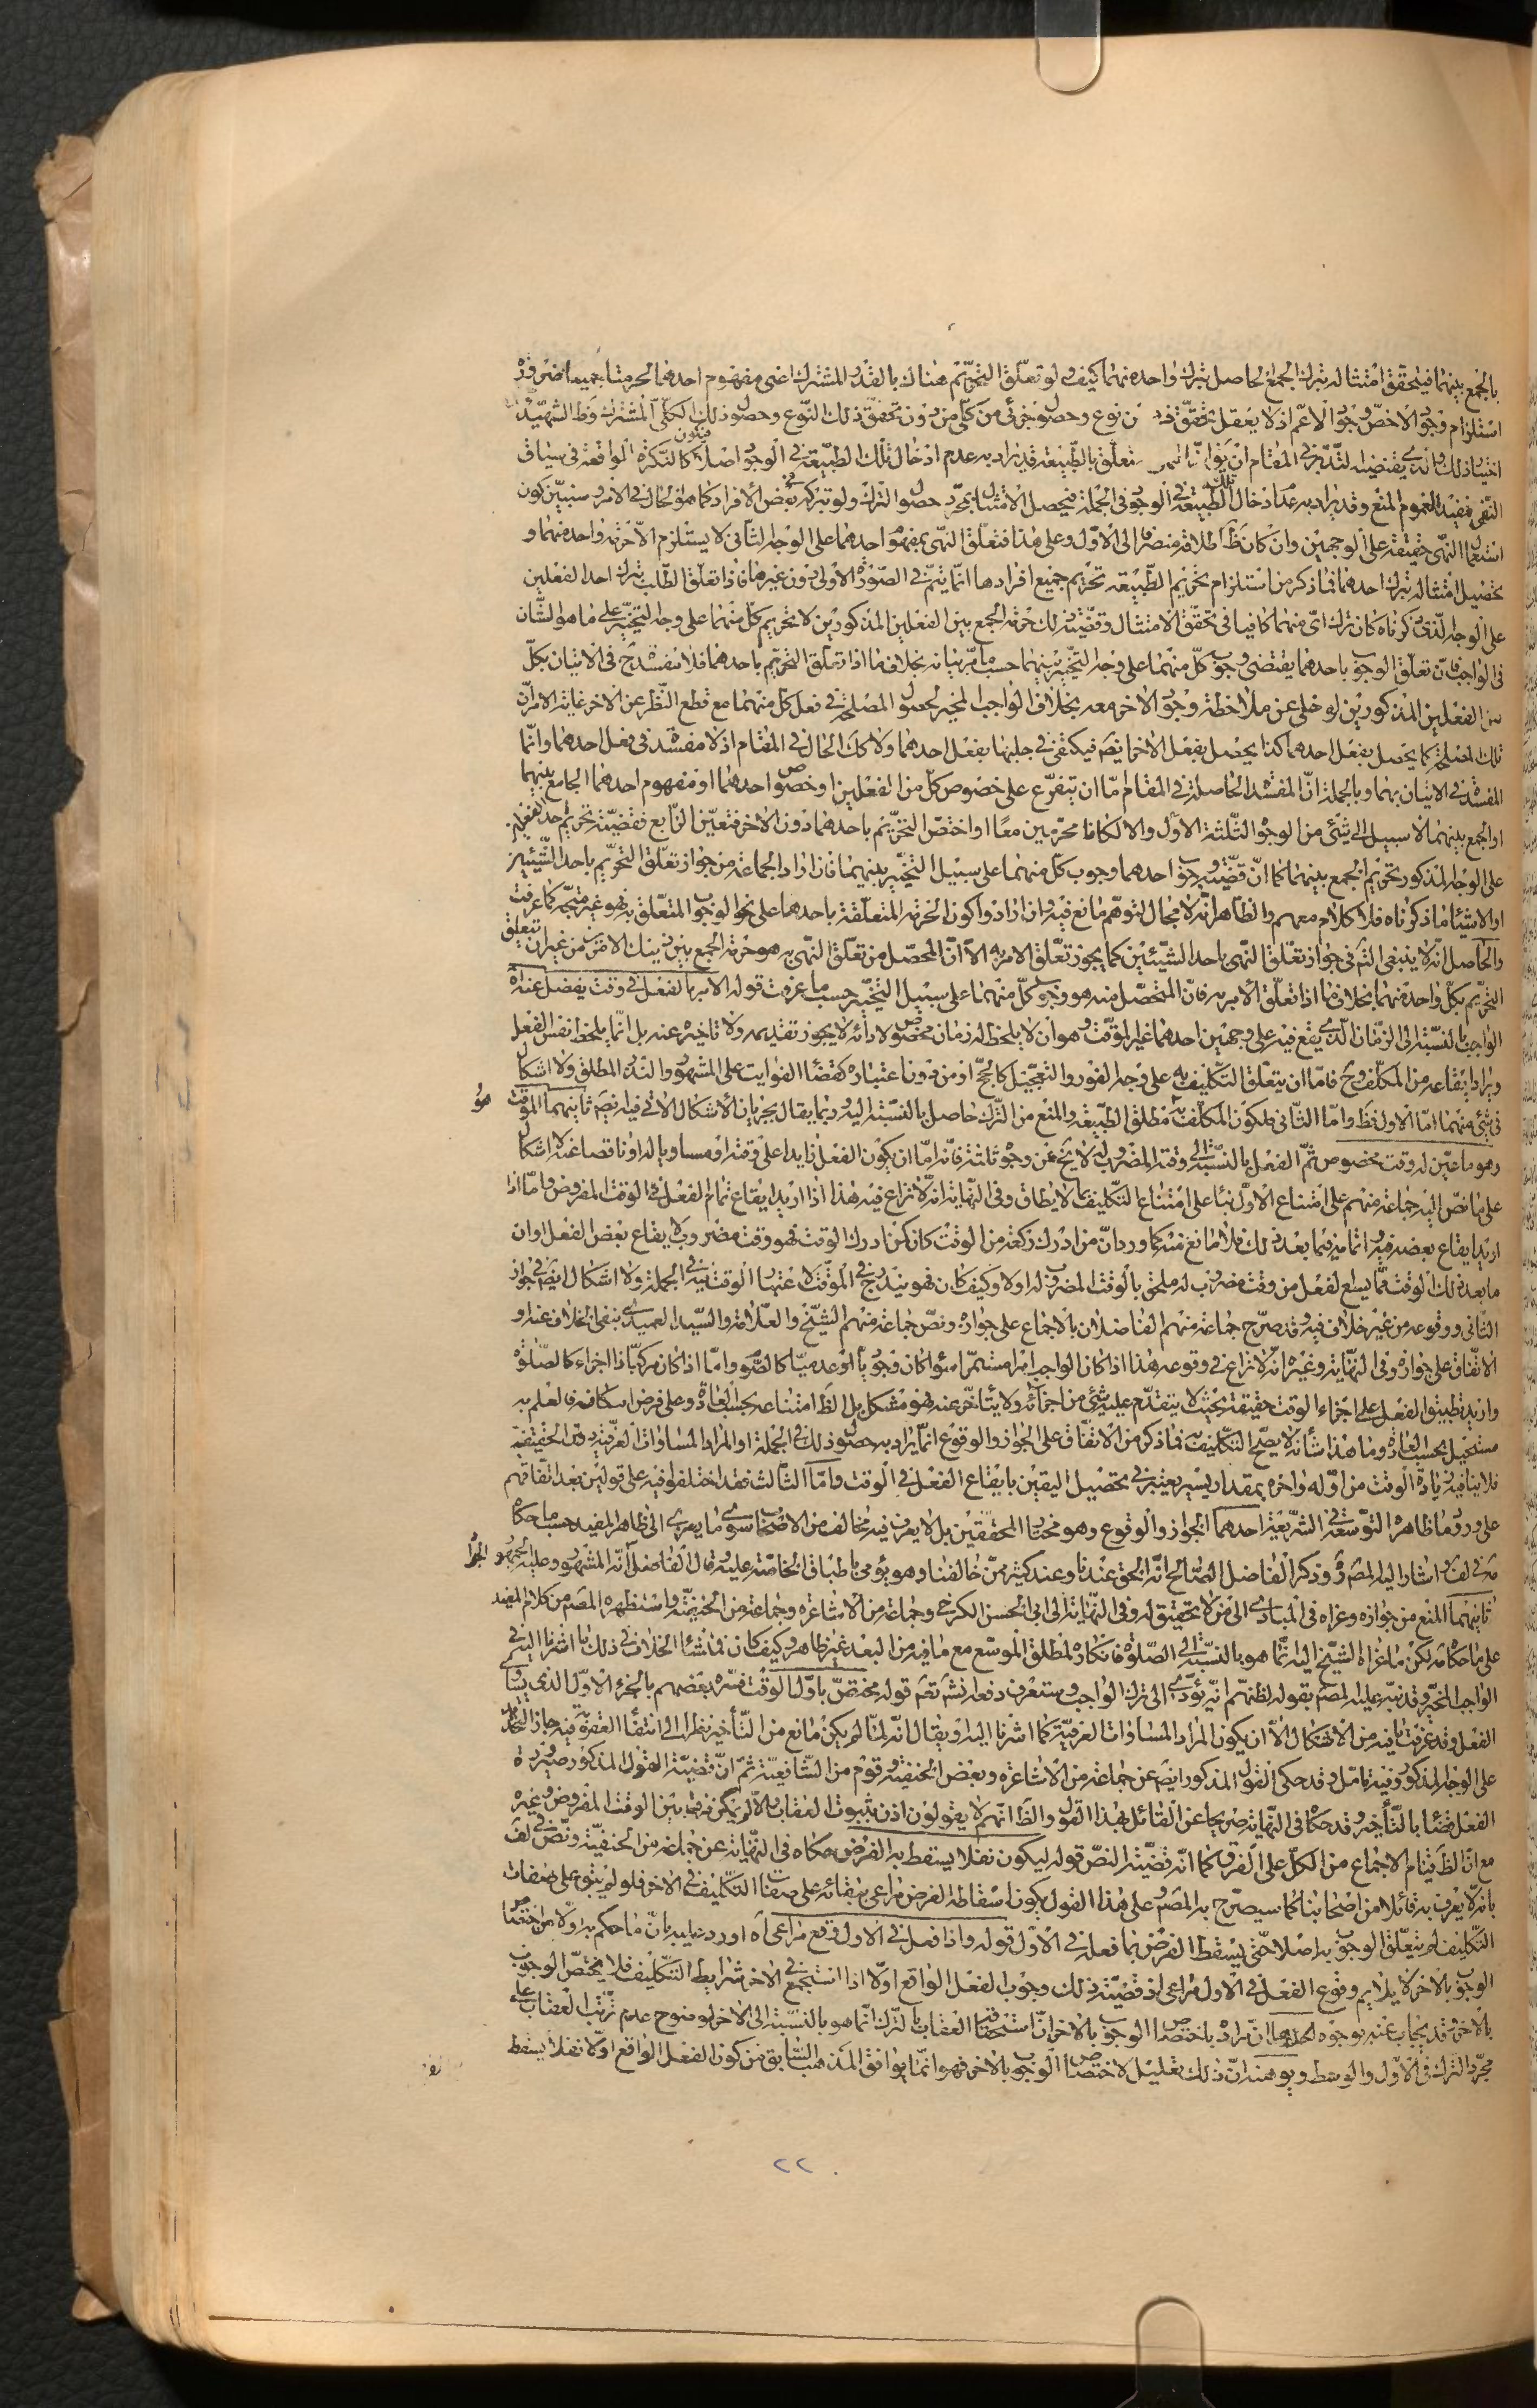 بالجمع بينهما فيتحقق امتثاله بترك الجمع الحاصل بترك واحد منهما كيف ولو تعلّق التحريم هناك بالقدر المشترك اعنى مفهوم احدهما لحرمتا جميعا ضرورة
استلزام وجود الاخصّ وجود الاعمّ اذ لا يعقل تحقّق نوع وحصول جزئى من كلّى من دون تحقق ذلك النّوع وحصول ذلك الكلّى المشترك وظ الشهيد
اختيار ذلك والّذى يقتضيه التّدبّر فى المقام ان يق انّ النهى المتعلّق بالطّبيعة قد يراد به عدم ادخال تلك الطبيعة فى الوجود اصلا فيكون كالنّكرة الواقعة فى سياق
النّفى فيفيد العموم المنع وقد يراد به عدم ادخال تلك الطبيعة فى الوجود فى الجملة فيحصل الامتثال بمجرّد حصول الترك ولو بتركه فى بعض الافراد كما هو الحال فى الامر وسنبيّن كون
استعمال النّهى حقيقة على الوجهين وان كان ظ اطلاقه منصرفا الى الاوّل وعلى هذا فتعلّق النهى بمفهوم احدهما على الوجه الثانى لا يستلزم الّا حرمة واحد منهما و
تحصيل امتثاله بترك احدهما فما ذكر من استلزام تحريم الطّبيعة تحريم جميع افرادها انّما يتمّ فى الصّورة الاولى دون غيرها فاذا تعلّق الطّلب بترك احد الفعلين
على الوجه الّذى ذكرناه كان ترك اىّ منهما كافيا فى تحقّق الامتثال وقضيّة ذلك حرمة الجمع بين الفعلين المذكورين لا تحريم كلّ منهما على وجه التخيير على ما هو الشّان
فى الواجب فانّ تعلّق الوجوب باحدهما يقتضى وجوب كلّ منهما على وجه التّخيير بينهما حسب ما مرّ بيانه بخلاف ما اذا تعلّق التحريم باحدهما فلا مفسدة ح فى الاتيان بكلّ
من الفعلين المذكورين لو خلى عن ملاحظة وجود الاخر معه بخلاف الواجب المخيّر لحصول المصلحة فى فعل كلّ منهما مع قطع النّظر عن الاخر غاية الامر انّ
تلك المصلحة كما يحصل بفعل احدهما كذا يحصل بفعل الاخر ايضَ فيكتفى فى جلبها بفعل احدهما ولا كك الحال فى المقام اذ لا مفسدة فى فعل احدهما وانّما
المفسدة فى الاتيان بهما وبالجملة انّ المفسدة الحاصلة فى المقام امّا ان يتفرّع على خصوص كلّ من الفعلين او خصوص احدهما او مفهوم احدهما الجامع بينهما
او الجمع بينهما لا سبيل الى شئى من الوجوه الثّلثة الاول والا لكانا محرّمين معًا او اختصّ التحريم باحدهما دون الاخر فتعيّن الرّابع فقضيّة تحريم احد الفعلين
على الوجه المذكور تحريم الجمع بينهما كما انّ قضيّة وجوب احدهما وجوب كلّ منهما على سبيل التخيير بينهما فان اراد الجماعة من جواز تعلّق التحريم باحد الشّيئين
او الاشياء ما ذكرناه فلا كلام معهم والظاهر انّه لا مجال لتوهّم مانع فيه وان ارادوا كون الحرمة المتعلقة باحدهما على نحو الوجوب المتعلّق به فهو غير متّجه كما عرفت
والحاصل انّه لا ينبغى التم فى جواز تعلّق النّهى باحد الشّيئين كما يجوز تعلّق الامر به الّا انّ المحصّل من تعلّق النّهى به هو حرمة الجمع بين ذينك الامرين من غير ان يتعلق
التحريم بكلّ واحد منهما بخلاف ما اذا تعلّق الامر به فانّ المتحصّل منه هو وجوب كلّ منهما على سبيل التخيير حسب ما عرفت قوله الامر بالفعل فى وقت يفضل عنه اه
الواجب بالنّسبة الى الزّمان الّذى يقع فيه على وجهين احدهما غير الموقّت وهو ان لا يلحظ له زمان مخصوص لادائه لا يجوز تقديمه ولا تاخيره عنه بل انّما يلحظ نفس الفعل
ويراد ايقاعه من المكلّف وح فامّا ان يتعلّق التكليف به على وجه الفور والتعجيل كالحجّ او من دون اعتباره كقضاء الفوايت على المشهور والنذر المطلق ولا اشكال
فى شئى منهما امّا الاول فظ وامّا الثّانى فلكون المكلّف به مطلق الطّبيعة والمنع من الترك حاصل بالنّسبة اليه وربما يقال بجريان الاشكال الاتى فيه ايضَ ثانيهما الموقّت
وهو ما عيّن له وقت مخصوص ثمّ الفعل بالنّسبة الى وقته المضروب له لا يخ عن وجوه ثلثة فانّه امّا ان يكون الفعل زايدا على وقته او مساويا له او ناقصا عنه لا اشكال
على ما نصّ اليه جماعة منهم على امتناع الاوّل بناء على امتناع التّكليف بما لا يطاق وفى النّهاية انّه لا نزاع فيه هذا اذا اريد ايقاع تمام الفعل فى الوقت المفروض وامّا اذا
اريد ايقاع بعضه فيه واتمامه فيما بعد ذلك فلا مانع منه كما ورد انّ من ادرك ركعة من الوقت كان كمن ادرك الوقت فهو وقت مضروب لايقاع بعض الفعل وان
ما بعد ذلك الوقت ممّا يسع الفعل من وقت مضروب له ملحق بالوقت المضروب له اولا وكيف كان فهو يندرج فى الموقّت لاعتبار الوقت فيه فى الجملة ولا اشكال ايضَ فى جواز
الثّانى ووقوعه من غير خلاف فيه وقد صرّح جماعة منهم الفاضلان بالاجماع على جوازه ونصّ جماعة منهم الشّيخ والعلّامة والسّيد العميدى بنفى الخلاف عنه او
الاتّفاق على جوازه وفى النّهاية وغيره انّه لا نزاع فى وقوعه هذا اذا كان الواجب امرا مستمرّا سواء كان وجوديّا او عدميّا كالصّوم وامّا اذا كان مركّبا ذا اجزاء كالصّلوة
واريد تطبيق الفعل على اجزاء الوقت حقيقة بحيث لا يتقدّم عليه شئى من اجزائه ولا يتاخّر عنه فهو مشكل بل الظ امتناعه بحسب العادة وعلى فرض امكانه فالعلم به
مستحيل بحسب العادة وما هذا شانه لا يصحّ التكليف به فما ذكر من الاتفاق على الجواز والوقوع انّما يراد به حصول ذلك فى الجملة او المراد المساواة العرفيّة دون الحقيقيّة
فلا ينافيه زيادة الوقت من اوّله واخره بمقدار يسير يعتبر فى تحصيل اليقين بايقاع الفعل فى الوقت وامّا الثّالث فقد اختلفوا فيه على قولين بعد اتّفاقهم
على ورود ما ظاهره التّوسعة فى الشّريعة احدهما الجواز والوقوع وهو مختار المحققين بل لا يعرف فيه مخالف من الاصحاب سوى ما يعزى الى ظاهر المفيد حسب ما حكاه
مه فى لف واشار اليه المصَ ره وذكر الفاضل الصّالح انّه الحق عندنا وعند كثير ممّن خالفنا وهو يؤمى باطباق الخاصّة عليه وقال الفاضل انّه المشهور وعليه الجمهور الجواد
ثانيهما المنع من جوازه وعزاه فى المبادى الى من لا تحقيق له وفى النّهاية الى ابى الحسن الكرخى وجماعة من الاشاعرة وجماعة من الحنفيّة واستظهره المصَ من كلام المفيد
على ما حكاه مه لكن ما عزاه الشّيخ اليه انّما هو بالنّسبة الى الصّلوة فانكاره لمطلق الموسّع مع ما فيه من البعد غير ظاهر وكيف كان فمنشاء الخلاف فى ذلك ما اشرنا اليه فى
الواجب المخيّر وقد نبّه عليه المصَ بقوله لظنّهم انّه يؤدّى الى ترك الواجب وستعرف دفعه انش تعَ قوله مختصّ باوّل الوقت فسّره بعضهم بالجزء الاوّل الذى يساوى
الفعل وقد عرفت ما فيه من الاشكال الّا ان يكون المراد المساواة العرفيّة كما اشرنا اليه او يقال انّه لمّا لم يكن مانع من التّاخير نظرا الى انتفاء العقوبة فيه جاز التّكليف
على الوجه المذكور وفيه تامّل وقد حكى القول المذكور ايضَ عن جماعة من الاشاعرة وبعض الحنفيّة وقوم من الشّافعيّة ثمّ انّ قضيّة القول المذكور صيرورة
الفعل قضاء بالتّاخير وقد حكاه فى النّهاية صريحا عن القائل بهذا القول والظ انّهم لا يقولون اذن بثبوت العقاب والّا لم يكن فرق بين الوقت المفروض وغيره
مع انّ الظ قيام الاجماع من الكلّ على الفرق كما انّه قضيّة النصّ قوله ليكون نفلا يسقط به الفرض حكاه فى النّهاية عن جماعة من الحنفيّة ونصّ فى لف
بانّه لا يعرف به قائلا من اصحابنا كما سيصرّح به المصَ وعلى هذا القول يكون اسقاطه الفرض مراعى ببقائه على صفات التّكليف فى الاخر فلو لم يبق على صفات
التّكليف لم يتعلّق الوجوب به اصلا حتّى يسقط الفرض بما فعله فى الاوّل قوله واذا فعل فى الاول وقع مراعى اه اورد عليه بانّ ما حكم به اوّلا من اختصاص
الوجوب بالاخر لا يلايم وقوع الفعل فى الاول مراعى اذ قضيّة ذلك وجوب الفعل الواقع اوّلا اذا استجمع فى الاخر شرايط التكليف فلا يختصّ الوجوب
بالاخر وقد يجاب عنه بوجوه احدها انّ مراده باختصاص الوجوب بالاخر انّ استحقاق العقاب بالترك انّما هو بالنّسبة الى الاخر لوضوح عدم ترتّب العقاب على
مجرّد الترك فى الاوّل والوسط ويوهنه انّ ذلك تعليل لاختصاص الوجوب بالاخر فهو انّما يوافق المذهب السّابق من كون الفعل الواقع اوّلا نفلا يسقط
٢٢